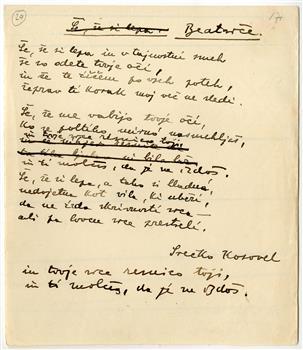 20
Še, še si lepa Beatriče.
Še, še si lepa in v tajnostni smeh
še so odete tvoje oči,
in še te iščem po vseh poteh,
čeprav ti korak moj več ne sledi.
Še, še me vabijo tvoje oči,
ko se poltiho, mirno nasmehljaš,
in tvoje srce resnico taji
in ti molčiš, da je ne izdaš.
Še, še si lepa, a tako si hladna,
nedojetna kot vila, ki ubeži,
da ne žida skrivnosti srca —
ali pa lovcu srce prestreli.
Srečko Kosovel
in tvoje srce resnico taji,
in ti molčiš, da je ne izdaš.